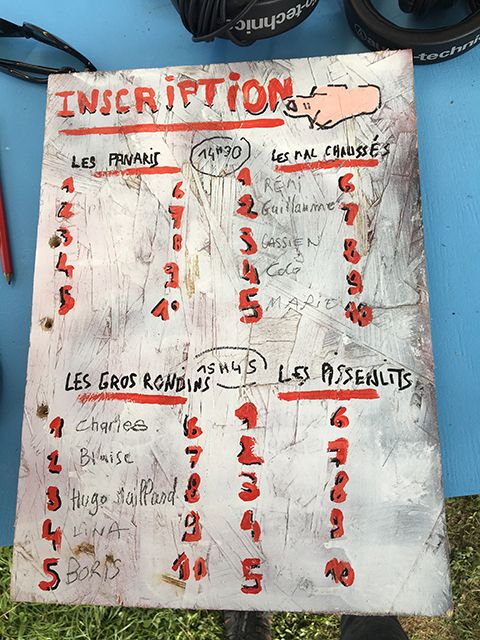 o-technic
o-technic
INSCRIPTION
LES PANARIS 14H30 LES MAL CHAUSSÉS
1 6 1 REMI 6
2 7 2 Guillaume 7
3 8 3 CASSIEN 8
4 9 4 Coco 9
5 10 5 MARIE 10
LES GROS RONDINS 15H45 LES PISSENLITS
1 Charles 6 1 6
2 Blaise 7 2 7
3 Hugo Maillard 8 3 8
4 LINA 9 4 9
5 BORIS 10 5 10